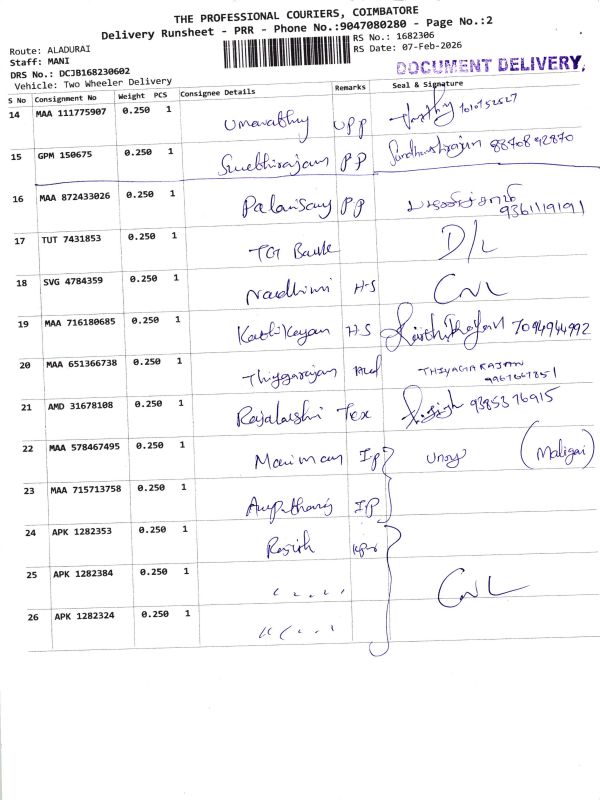 THE PROFESSIONAL COURIERS, COIMBATORE
Delivery Runsheet - PRR - Phone No.:9047080280 - Page No.:2
Route: ALADURAI
RS No.: 1682306
Staff: MANI
RS Date: 07-Feb-2026
DRS No.: DCJB168230602
DOCUMENT DELIVERY,
Vehicle: Two Wheeler Delivery
S No Consignment No Weight PCS Consignee Details Remarks Seal & Signature
14 MAA 111775907 0.250 1 UPP
15 GPM 150675 0.250 1 PP 8870892870
16 MAA 872433026 0.250 1 Palanisamy PP 9361119191
17 TUT 7431853 0.250 1 D/L
18 SVG 4784359 0.250 1 Nandhini H-S CNL
19 MAA 716180685 0.250 1 Karthikeyan H S Karthikeyan 7094944992
20 MAA 651366738 0.250 1 Thiyagarajan THIYAGARAJAN
21 AMD 31678108 0.250 1 Rajalakshmi Tex 9385376915
22 MAA 578467495 0.250 1 IP (Maligai)
23 MAA 715713758 0.250 1 IP
24 APK 1282353 0.250 1
25 APK 1282384 0.250 1 CNL
26 APK 1282324 0.250 1